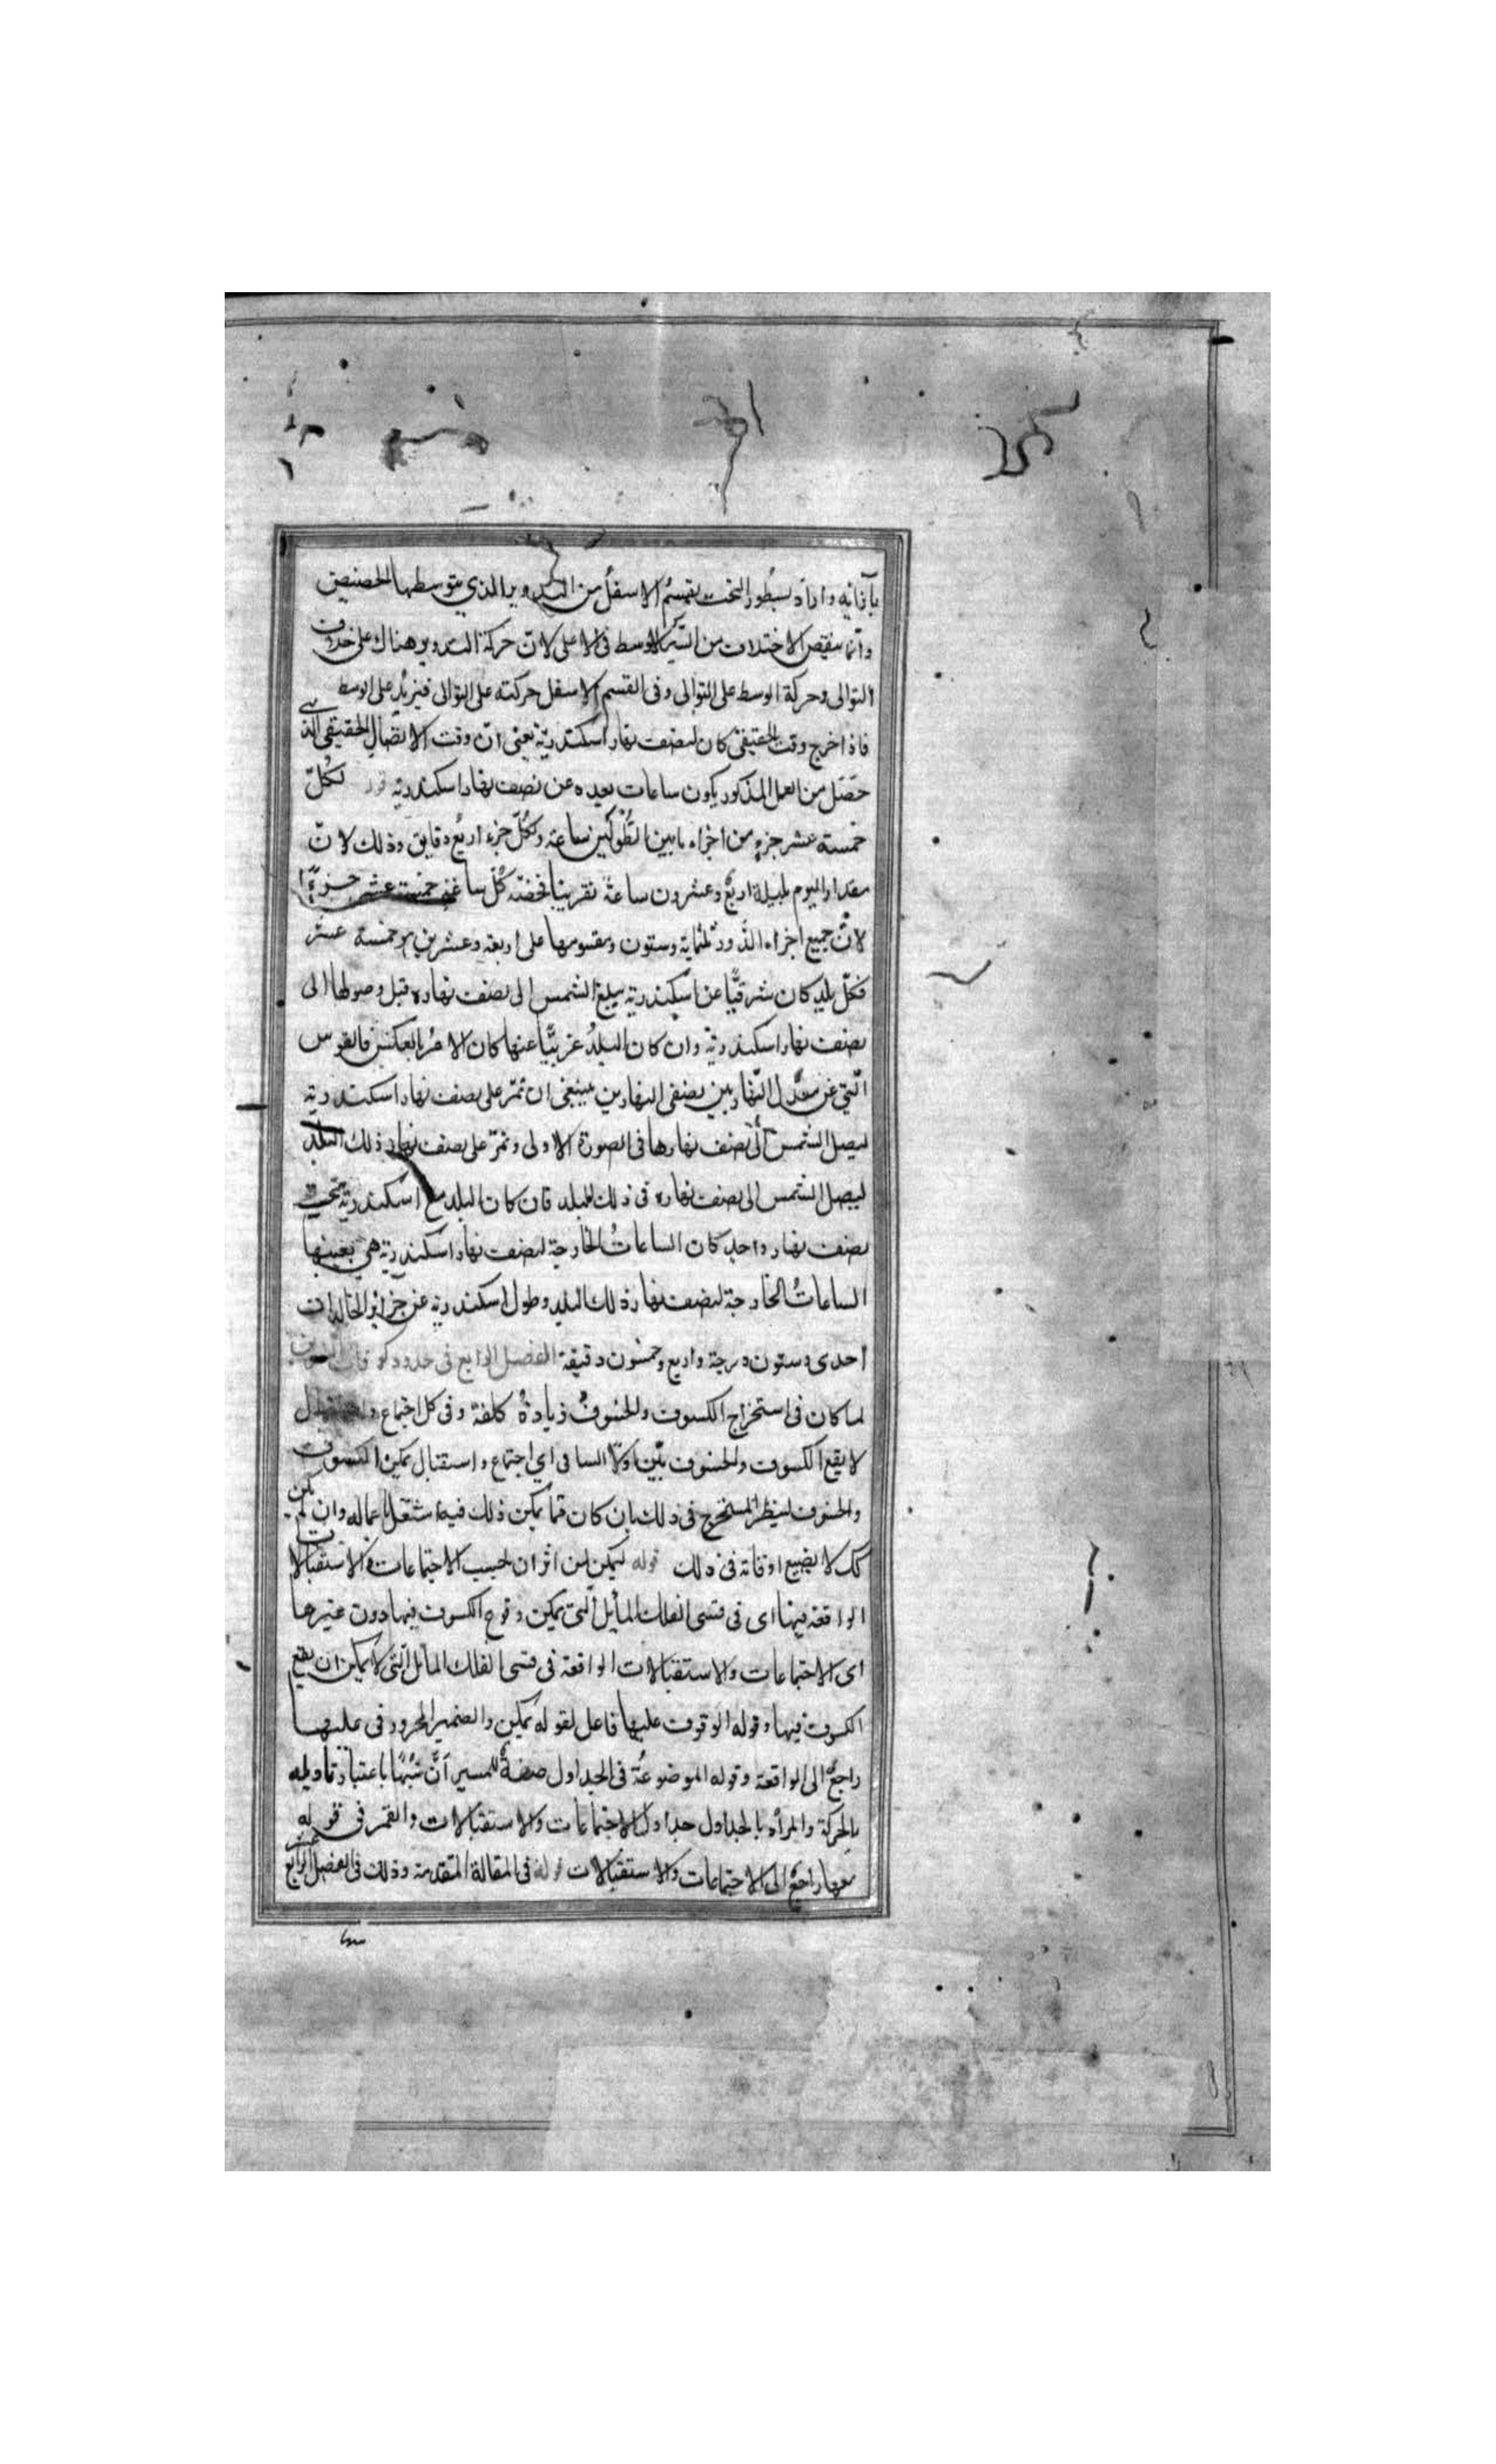 بآزائه واراد بسطور التحت بقسم الاسفل من التدوير الذي يتوسطها الحضيض
وانما ينقص الاختلاف من السير الاوسط فى الاعلى لانّ حركة التدوير هناك على خلاف
التوالى وحركة الوسط على التوالى وفى القسم الاسفل حركته على التوالى فيزيد على الوسط
فاذا خرج وقت الحقيقى كان لنصف نهار اسكندريّة يعنى انّ وقت الاتصال الحقيقى الذى
حصَل من العمل المذكور يكون ساعات بعده عن نصف نهار اسكندرية لكُلّ
خمسة عشر جزءٍ من اجزاء ما بين الطُولَين ساعة ولكُلّ جزء اربع دقايق وذلك لانّ
مقدار اليوم بليلة اربعٌ وعشرون ساعةً تقريبًا فحصّة كُلّ ساعة خمسة عشر جزءًا
لانّ جميع اجزاء الدَّور ثلثماية وستون ومقسومها على اربعة وعشرين هو خمسة عشر
فكلّ بلدٍ كان شرقيًّا عن اسكندرية يبلغ الشمس الى نصف نهاره قبل وصولها الى
نصف نهار اسكندرية وان كان البلدُ غربيًّا عنها كان الامرُ بالعكس فالقوس
الّتي من معدّل النّهار بين نصفى النهارين ينبغى ان تمرّ على نصف نهار اسكندرية
ليصل الشمس الى نصف نهارها فى الصورة الاولى وتمرّ على نصف نهار ذلك البلد
ليصل الشمس الى نصف نهاره فى ذلك البلد فان كان البلد مع اسكندرية تحت
نصف نهار واحد كان الساعاتُ الخارجة لنصف نهار اسكندرية هي بعينها
الساعاتُ الخارجة لنصف نهار ذلك البلد وطول اسكندرية عن جزائر الخالدات
احدى وستون درجة واربع وخمسون دقيقة الفصل الرابع فى حدود كسوفات
لما كان فى استخراج الكسوف والخسوف زيادةُ كلفة وفى كل اجتماع واستقبال
لا يقع الكسوف والخسوف بيّن اوّلا انّها فى اي اجتماع واستقبال يمكن الكسوف
والخسوف لينظر المستخرج فى ذلك بان كان ممّا يمكن ذلك فيه اشتغل باعماله وان لم يكن
كك لا يضيع اوقاته فى ذلك قوله ليمكن لمن اثر ان يحسب الاجتماعات والاستقبالات
الواقعة فيها اى فى قسى الفلك المايل التى يمكن وقوع الكسوف فيها دون غيرها
اى الاجتماعات والاستقبالات الواقعة فى قسى الفلك المائل التى لا يمكن ان يقع
الكسوف فيها وقوله الوقوف عليها فاعل لقوله يمكن والضمير المجرور فى عليها
راجعٌ الى الواقعة وقوله الموضوعةُ فى الجداول صفةٌ للمسير باعتبار تاويله
بالحركة والمراد بالجداول جداول الاجتماعات والاستقبالات والقمر فى قوله
معها راجع الى الاجتماعات والاستقبالات قوله فى المقالة المتقدمة وذلك فى الفصل الرابع عشر